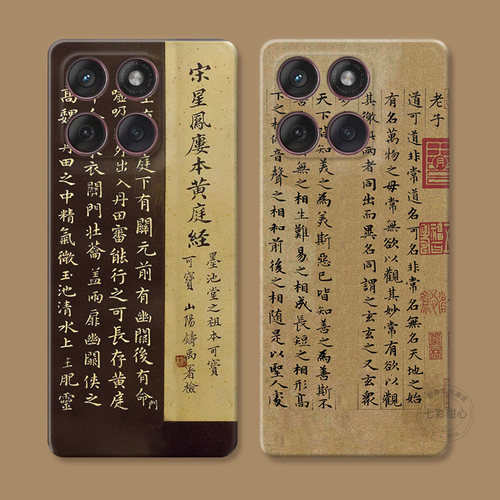 宋星鳳廔本黄庭經
墨池堂之祖本可寶
可寶 山陽鑄禹署檢
庭下有關元前有幽闕後有命門
噓吸出入丹田審能行之可長存黄庭
衣關門壮籥盖兩扉幽闕侠之
高巍丹田之中精氣微玉池清水上生肥靈
老子
道可道非常道名可名非常名無名天地之始
有名萬物之母常無欲以觀其妙常有欲以觀
其徼兩者同出而異名同謂之玄玄之又玄眾
天下皆知美之為美斯惡已皆知善之為善斯不
善無之相生難易之相成長短之相形高
下之相音聲之相和前後之相隨是以聖人處
七彩甜心